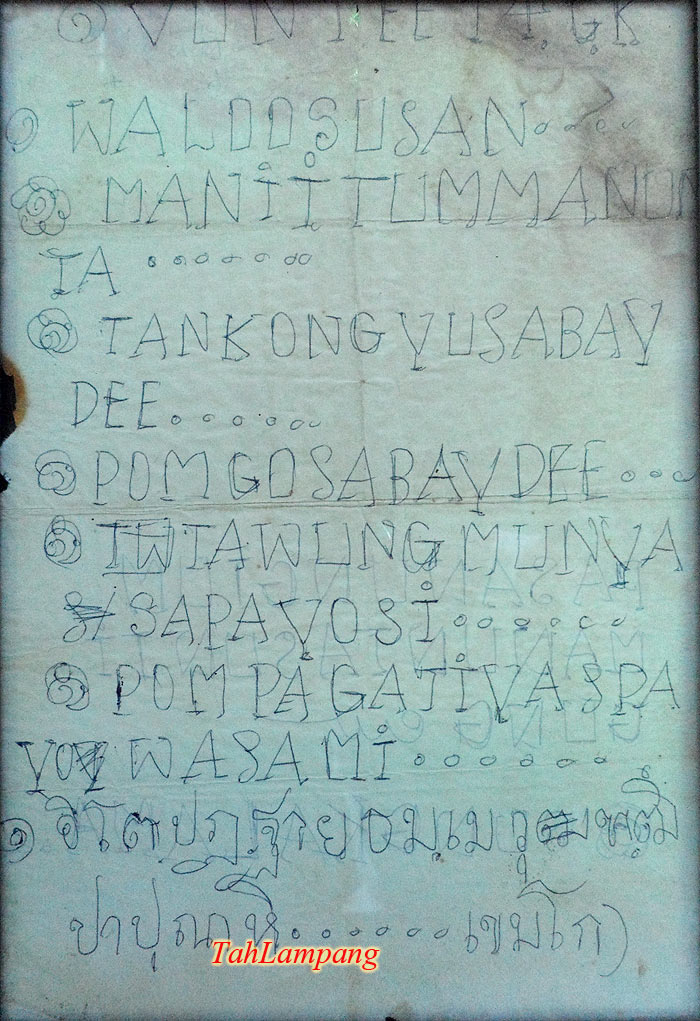 ๑ WALDOSUSAN....
๑ MANITTUMMANON
TA .......
๑ TANKONG YUSABAY
DEE......
๑ POMGOSABAYDEE...
๑ TAWUNG MUNYA
SAPAYOSI......
๑ POM PAGATIVASPA
YOY WASAMI......
๑ อิโต ปฏฺฐาย ธมฺเม
ปาปุณาหิ...... เขมโก)
TahLampang